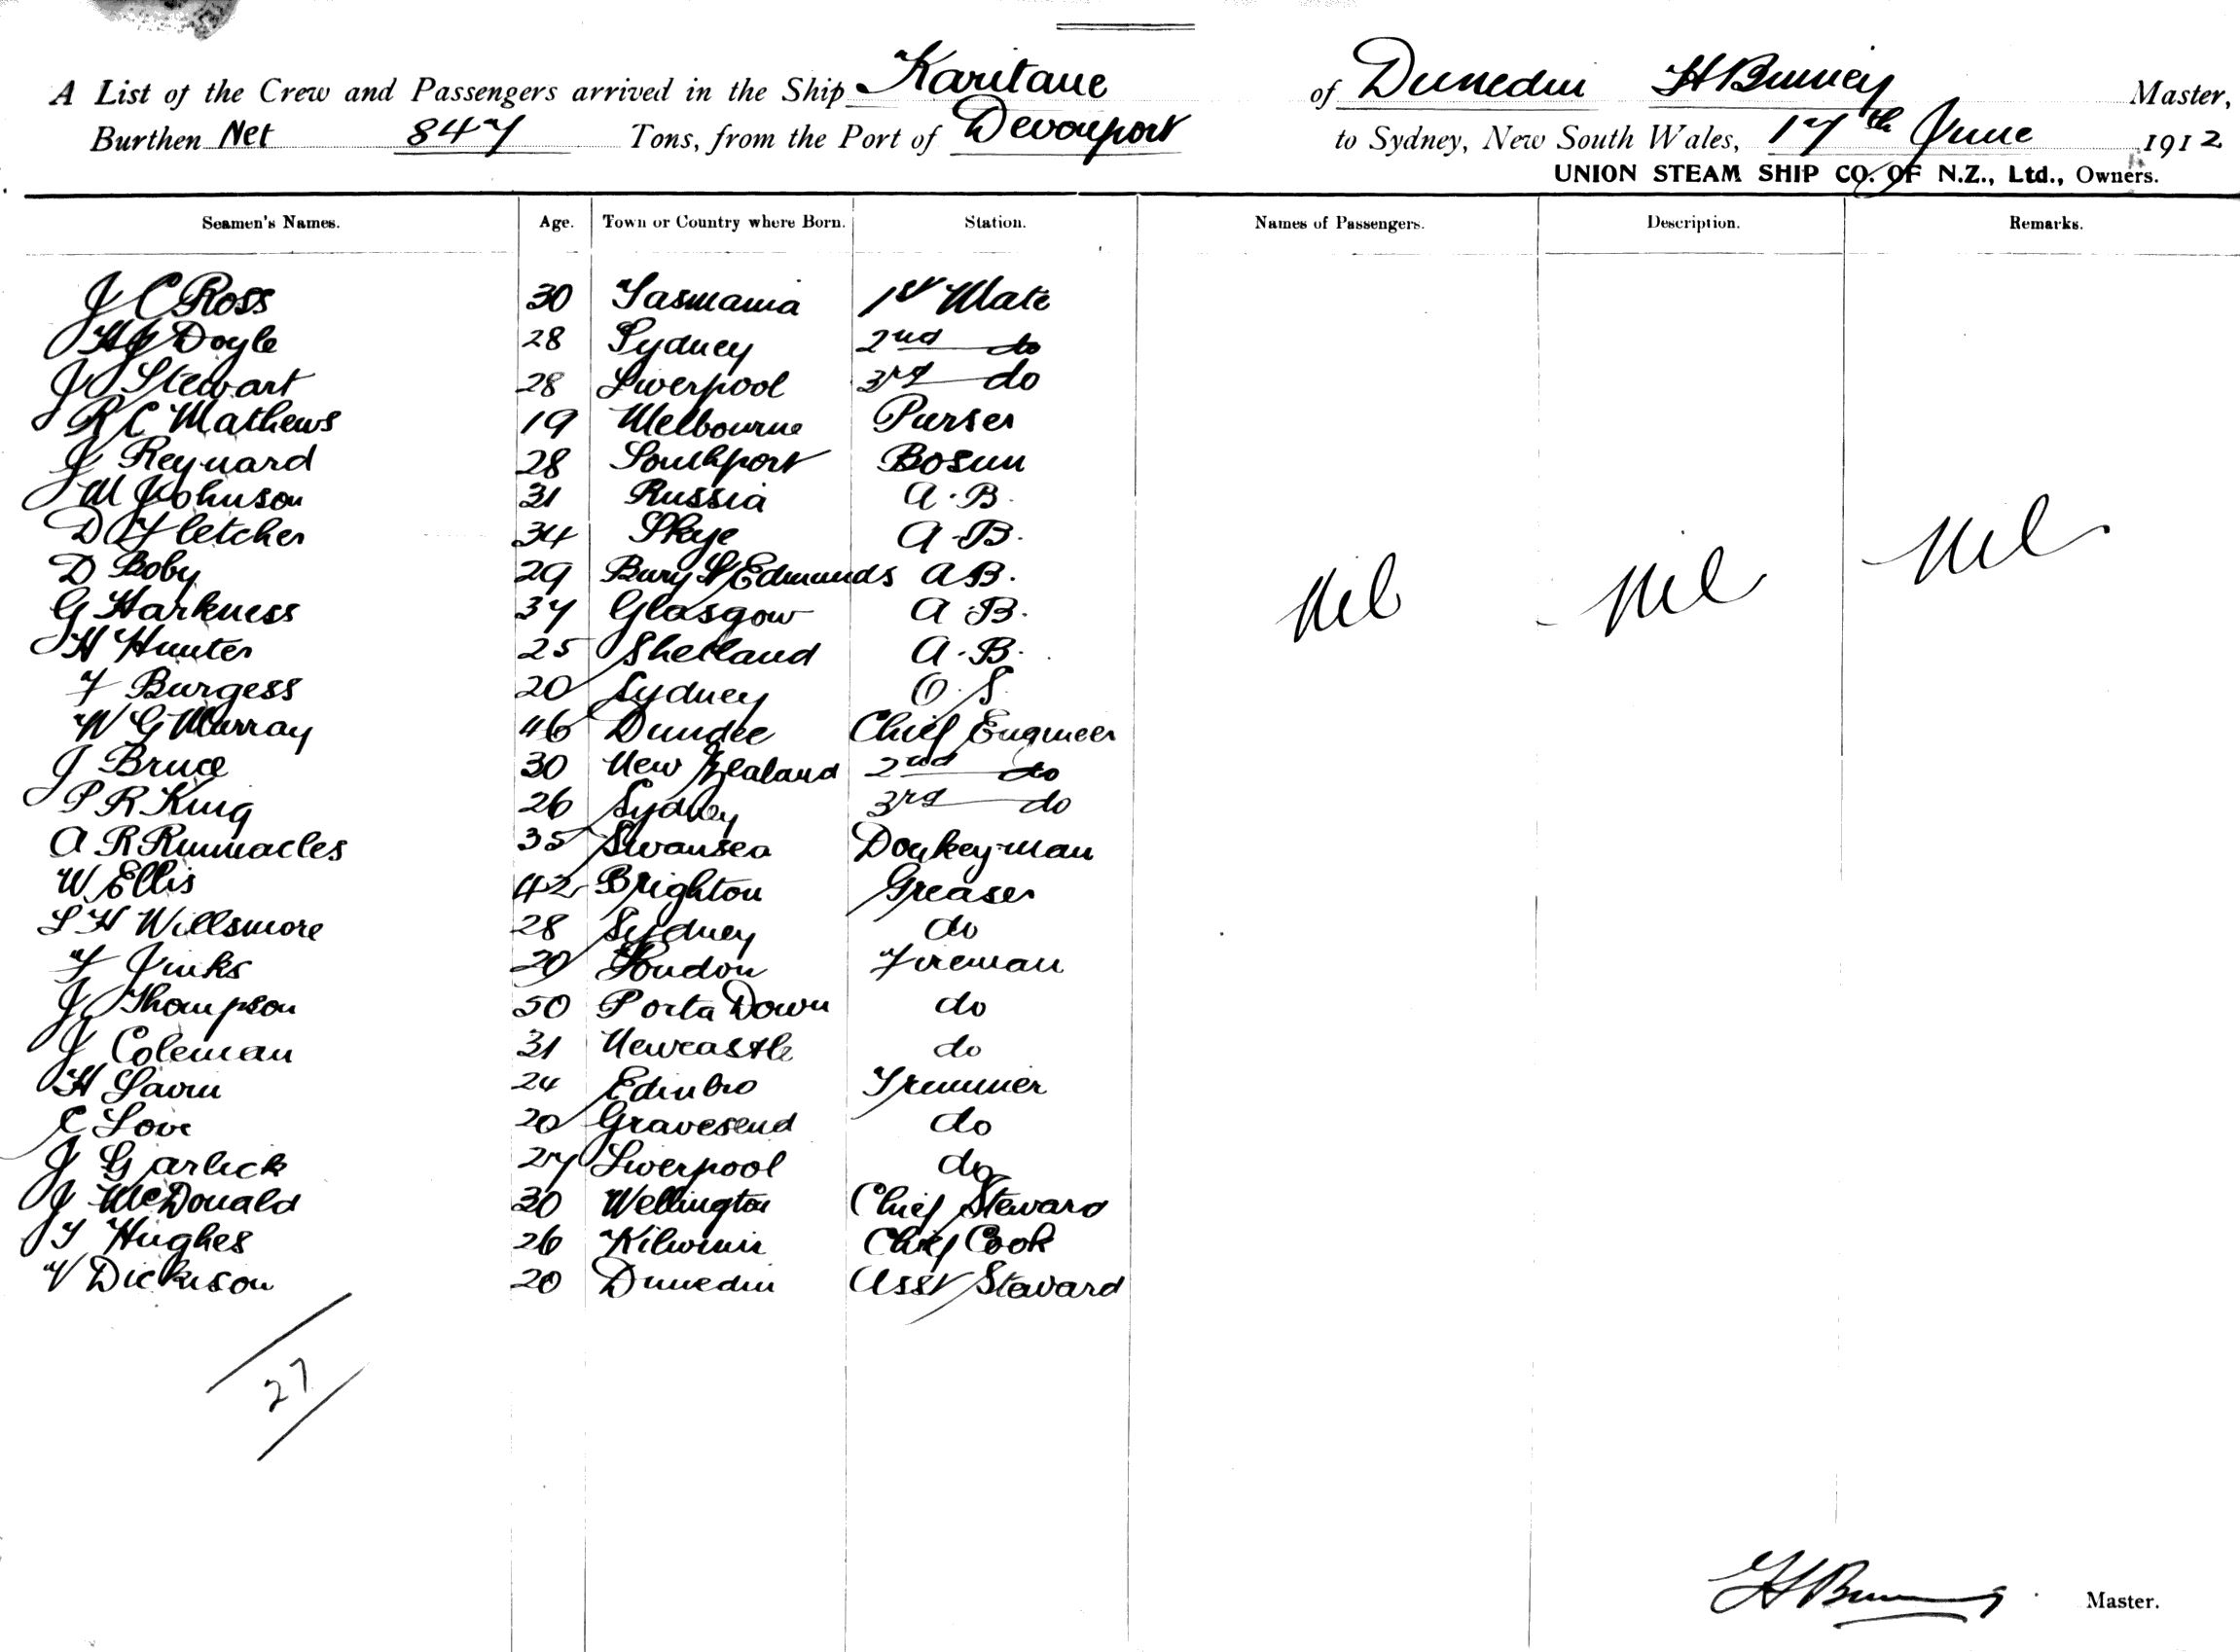 A List of the Crew and Passengers arrived in the Ship Karitane of Dunedin H Burney Master,
Burthen Net 847 Tons, from the Port of Devonport to Sydney, New South Wales, 17th June 1912
UNION STEAM SHIP CO. OF N.Z., Ltd., Owners.
Seamen's Names. Age. Town or Country where Born. Station. Names of Passengers. Description. Remarks.
J C Ross 30 Tasmania 1st Mate
H J Doyle 28 Sydney 2nd do
J Stewart 28 Liverpool 3rd do
R C Mathews 19 Melbourne Purser
J Reynard 28 Southport Bosun
M Johnson 31 Russia A.B.
D Fletcher 34 Skye A.B.
D Boby 29 Bury St Edmunds AB.
G Harkness 37 Glasgow A.B.
H Hunter 25 Shetland A.B.
Nil Nil Nil
F Burgess 20 Sydney O.S.
W G Murray 46 Dundee Chief Engineer
J Bruce 30 New Zealand 2nd do
P R King 26 Sydney 3rd do
A R Runnacles 35 Swansea Donkeyman
W Ellis 42 Brighton Greaser
S H Willsmore 28 Sydney do
F Jinks 29 London Fireman
J Thompson 50 Porta Down do
J Coleman 31 Newcastle do
H 24 Edinbro Trimmer
C Love 20 Gravesend do
J Garlick 27 Liverpool do
J McDonald 30 Wellington Chief Steward
T Hughes 26 Kilwinin Chief Cook
V Dickison 20 Dunedin Asst Steward
27
Master.